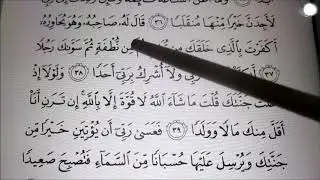 لَأَجِدَنَّ خَيْرًا مِّنْهَا مُنقَلَبًا ٣٦ قَالَ لَهُۥ صَاحِبُهُۥ وَهُوَ يُحَاوِرُهُۥٓ
أَكَفَرْتَ بِٱلَّذِى خَلَقَكَ مِن نُّطْفَةٍ ثُمَّ سَوَّىٰكَ رَجُلًا
٣٧ رَبِّى وَلَآ أُشْرِكُ بِرَبِّىٓ أَحَدًا ٣٨ وَلَوْلَآ إِذْ
جَنَّتَكَ قُلْتَ مَا شَآءَ ٱللَّهُ لَا قُوَّةَ إِلَّا بِٱللَّهِ ۚ إِن تَرَنِ أَنَا۠
أَقَلَّ مِنكَ مَالًا وَوَلَدًا ٣٩ فَعَسَىٰ رَبِّىٓ أَن يُؤْتِيَنِ خَيْرًا مِّن
جَنَّتِكَ وَيُرْسِلَ عَلَيْهَا حُسْبَانًا مِّنَ ٱلسَّمَآءِ فَتُصْبِحَ صَعِيدًا